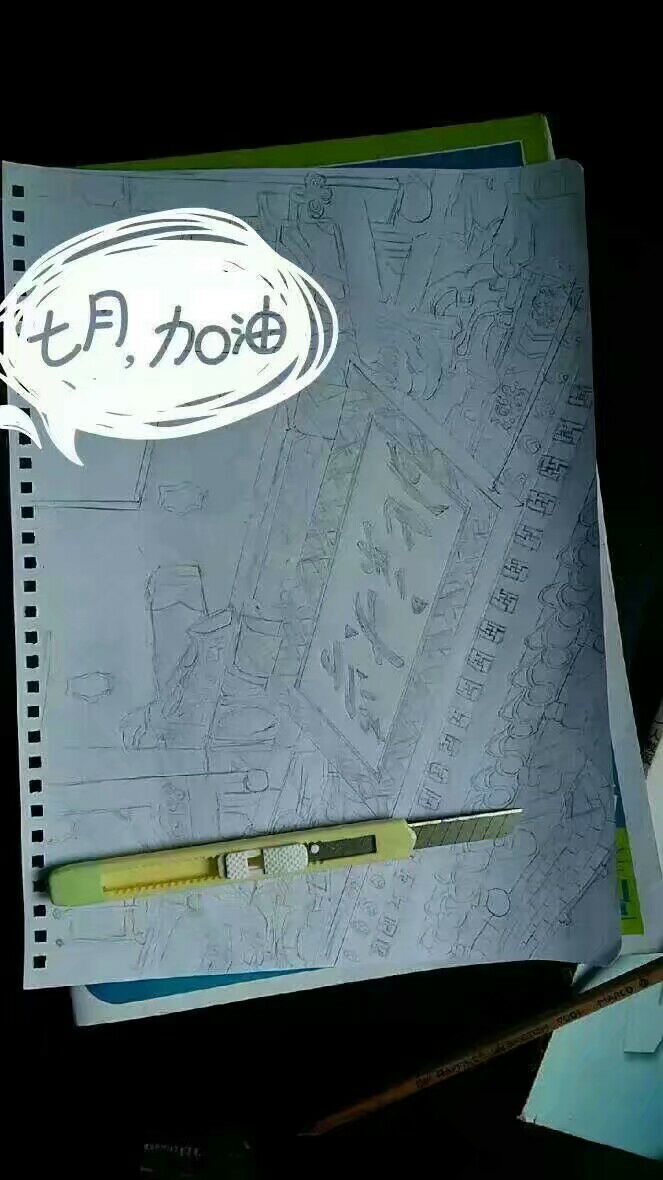 北京大学
七月,加油